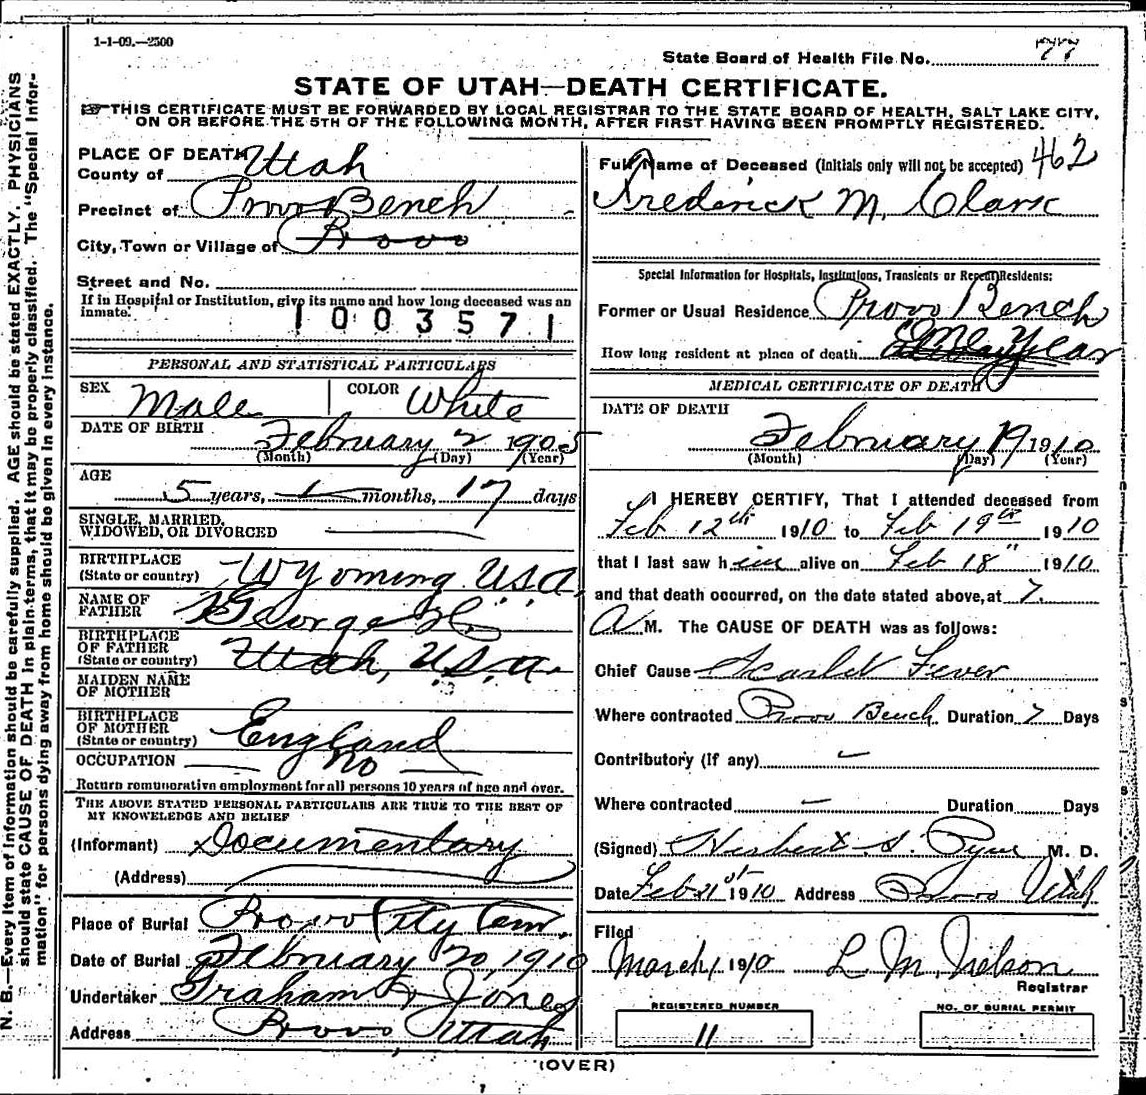 1-1-09.—2500
State Board of Health File No. 77
STATE OF UTAH—DEATH CERTIFICATE.
THIS CERTIFICATE MUST BE FORWARDED BY LOCAL REGISTRAR TO THE STATE BOARD OF HEALTH, SALT LAKE CITY,
ON OR BEFORE THE 5TH OF THE FOLLOWING MONTH, AFTER FIRST HAVING BEEN PROMPTLY REGISTERED.
N. B.—Every item of information should be carefully supplied. AGE should be stated EXACTLY. PHYSICIANS
should state CAUSE OF DEATH in plain terms, that it may be properly classified. The "Special Infor-
mation" for persons dying away from home should be given in every instance.
PLACE OF DEATH
County of Utah
Precinct of Provo Bench
City, Town or Village of Provo
Street and No.
If in Hospital or Institution, give its name and how long deceased was an
inmate.
1003571
PERSONAL AND STATISTICAL PARTICULARS
SEX Male COLOR White
DATE OF BIRTH
February 2 1905
(Month) (Day) (Year)
AGE
5 years, months, 17 days
SINGLE, MARRIED,
WIDOWED, OR DIVORCED
BIRTHPLACE
(State or country) Wyoming U.S.A.
NAME OF
FATHER George H.
BIRTHPLACE
OF FATHER
(State or country) Utah, U.S.A.
MAIDEN NAME
OF MOTHER
BIRTHPLACE
OF MOTHER
(State or country) England
OCCUPATION no
Return remunerative employment for all persons 10 years of age and over.
THE ABOVE STATED PERSONAL PARTICULARS ARE TRUE TO THE BEST OF
MY KNOWLEDGE AND BELIEF
(Informant) Documentary
(Address)
Place of Burial Provo City Cem.
Date of Burial February 20, 1910
Undertaker Graham & Jones
Address Provo Utah
Full Name of Deceased (initials only will not be accepted) 462
Frederick M. Clark
Special Information for Hospitals, Institutions, Transients or Recent Residents:
Former or Usual Residence Provo Bench
How long resident at place of death One Year
MEDICAL CERTIFICATE OF DEATH
DATE OF DEATH
February 19 1910
(Month) (Day) (Year)
I HEREBY CERTIFY, That I attended deceased from
Feb 12th 1910 to Feb 19th 1910
that I last saw him alive on Feb 18" 1910
and that death occurred, on the date stated above, at 7.
A M. The CAUSE OF DEATH was as follows:
Chief Cause Scarlet Fever
Where contracted Provo Bench Duration 7 Days
Contributory (If any)
Where contracted — Duration Days
(Signed) Herbert S. Pyne M. D.
Date Feb 21st 1910 Address Provo Utah
Filed
March 1 1910 L M. Nelson
Registrar
REGISTERED NUMBER
11
NO. OF BURIAL PERMIT
(OVER)